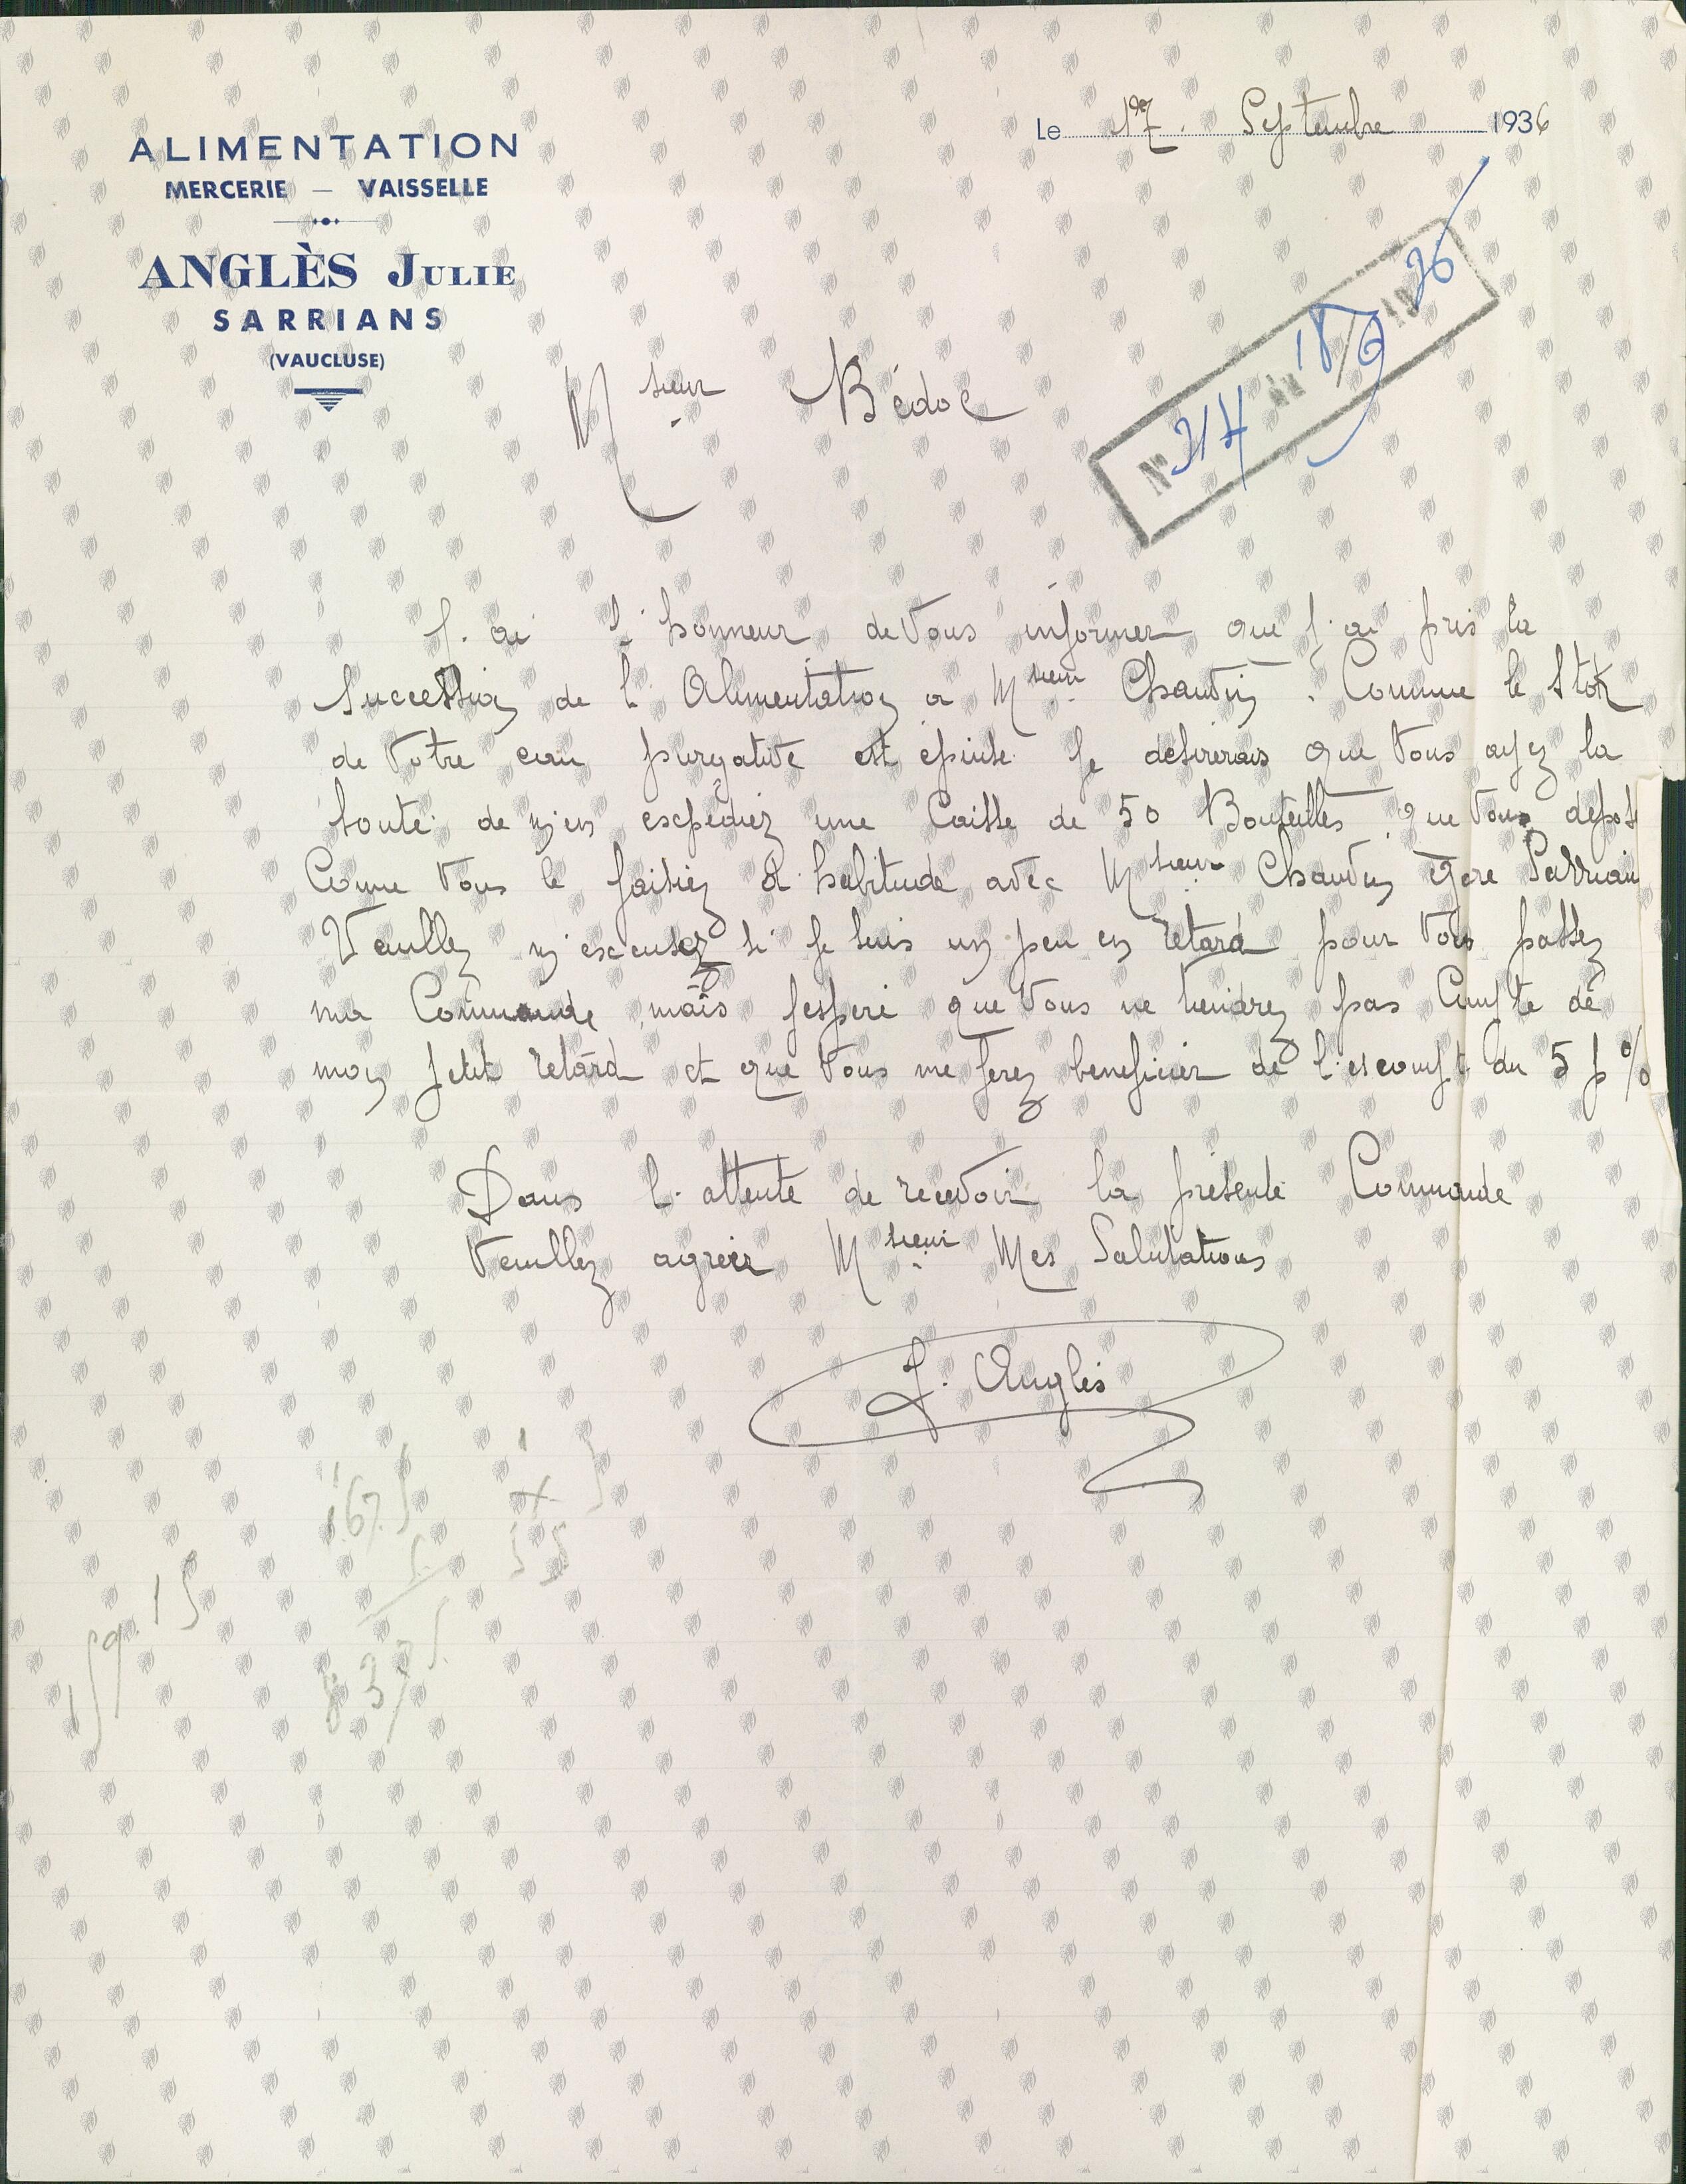 Le 17. Septembre 1936
ALIMENTATION
MERCERIE — VAISSELLE
ANGLÈS JULIE
SARRIANS
(VAUCLUSE)
N° 214 du 18/9 1936
Msieur Bédoc
J. ai l'honneur de Vous informer que j. ai pris la
succession de l'Alimentation a Msieur Chauvin. Comme le Stok
de Votre eau purgative est épuisé je desirerais que Vous ayez la
bonté de m'en expédiez une Caisse de 50 Bouteilles que Vous
Come Vous le faisiez d'habitude avec Msieur Chauvin gare Sarrian
Veuillez m'excusez si je suis un peu en retard pour Vous passez
ma Commande mais jespere que Vous ne tiendrez pas Compte de
mon petit retard et que Vous me ferez beneficier de l'escompt du 5 p %
Dans l'attente de recevoir la présente Commande
Veuillez agréer Msieur Mes Salutations
J. Anglès
167.5
5
8375
159.15